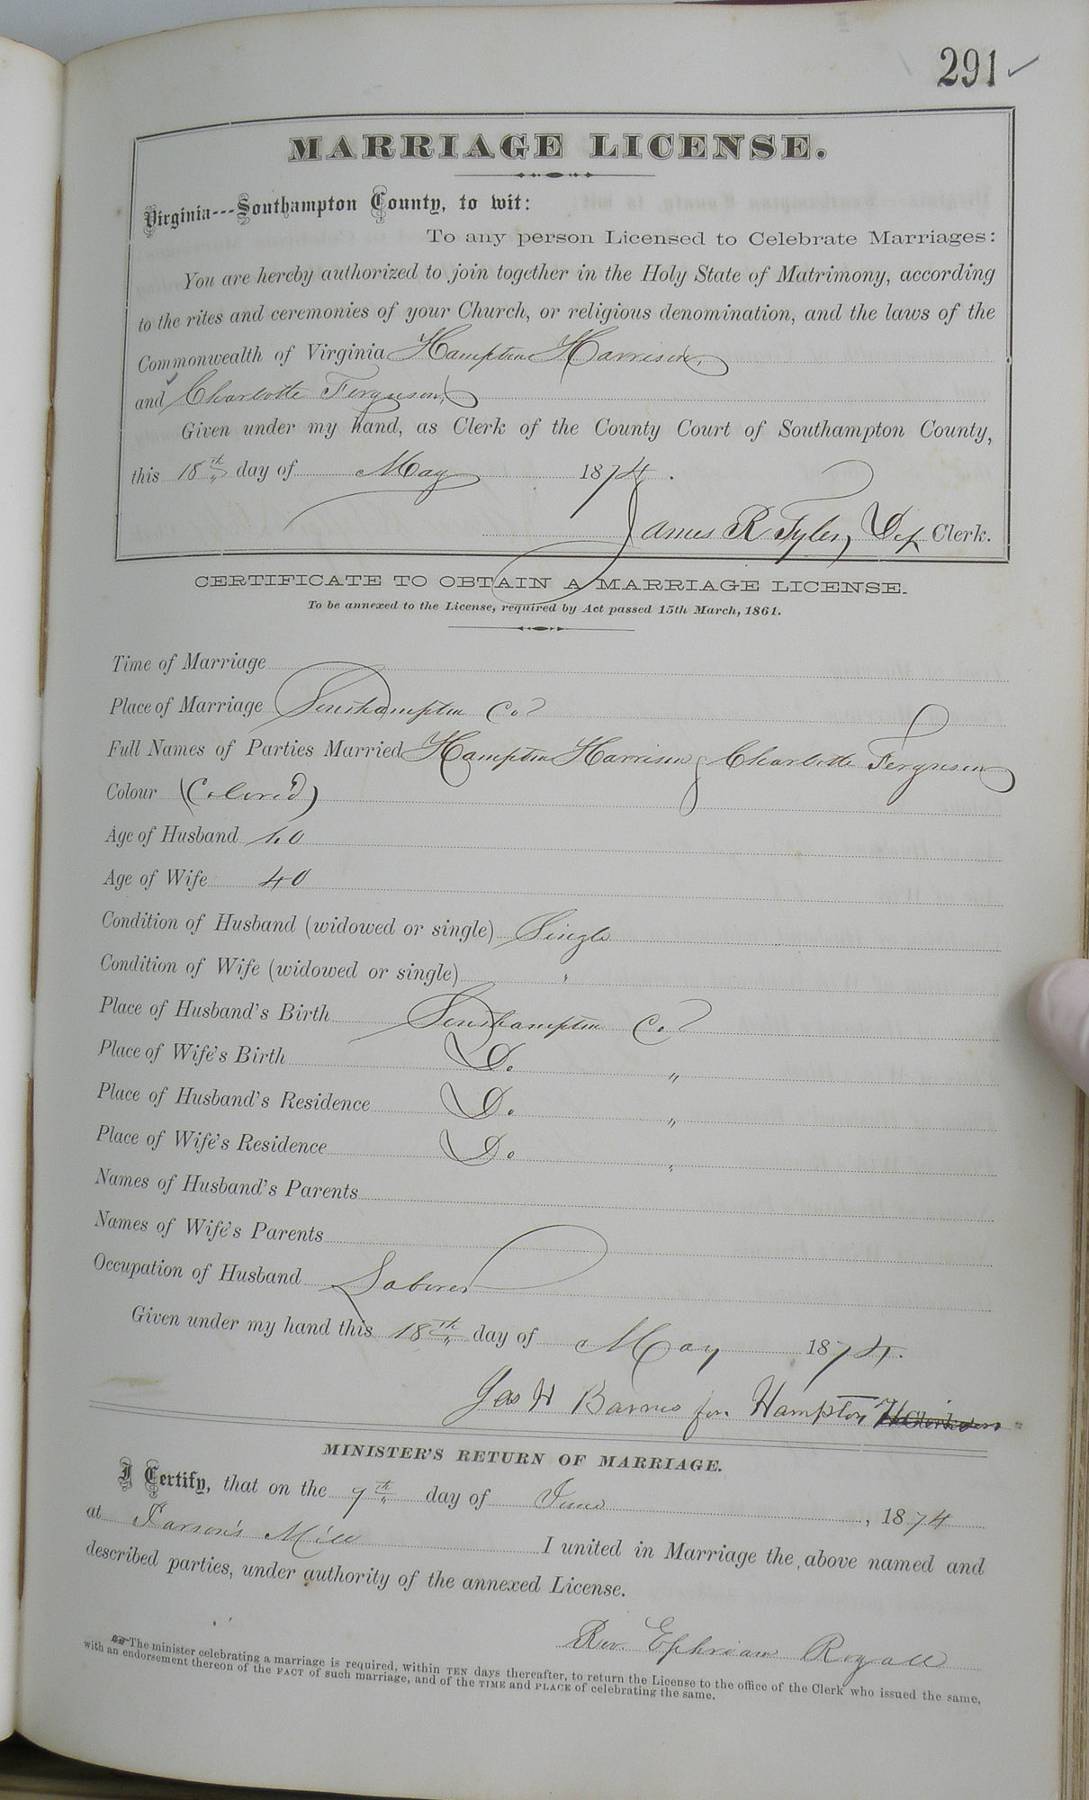 291 ✓
MARRIAGE LICENSE.
Virginia---Southampton County, to wit:
To any person Licensed to Celebrate Marriages:
You are hereby authorized to join together in the Holy State of Matrimony, according
to the rites and ceremonies of your Church, or religious denomination, and the laws of the
Commonwealth of Virginia Hampton Harrison,
and Charlotte Ferguson,
Given under my hand, as Clerk of the County Court of Southampton County,
this 18th day of May 1874.
James R Tyler, Dep Clerk.
CERTIFICATE TO OBTAIN A MARRIAGE LICENSE.
To be annexed to the License, required by Act passed 15th March, 1861.
Time of Marriage
Place of Marriage Southampton Co
Full Names of Parties Married Hampton Harrison & Charlotte Ferguson
Colour (Colored)
Age of Husband 40
Age of Wife 40
Condition of Husband (widowed or single) Single
Condition of Wife (widowed or single) "
Place of Husband's Birth Southampton Co
Place of Wife's Birth Do "
Place of Husband's Residence Do "
Place of Wife's Residence Do "
Names of Husband's Parents
Names of Wife's Parents
Occupation of Husband Laborer
Given under my hand this 18th day of May 1874.
Jas H Barnes for Hampton
MINISTER'S RETURN OF MARRIAGE.
I Certify, that on the 7th day of June, 1874
at Parson's Mill I united in Marriage the above named and
described parties, under authority of the annexed License.
Rev. Ephriam Royall
The minister celebrating a marriage is required, within TEN days thereafter, to return the License to the office of the Clerk who issued the same,
with an endorsement thereon of the FACT of such marriage, and of the TIME and PLACE of celebrating the same.